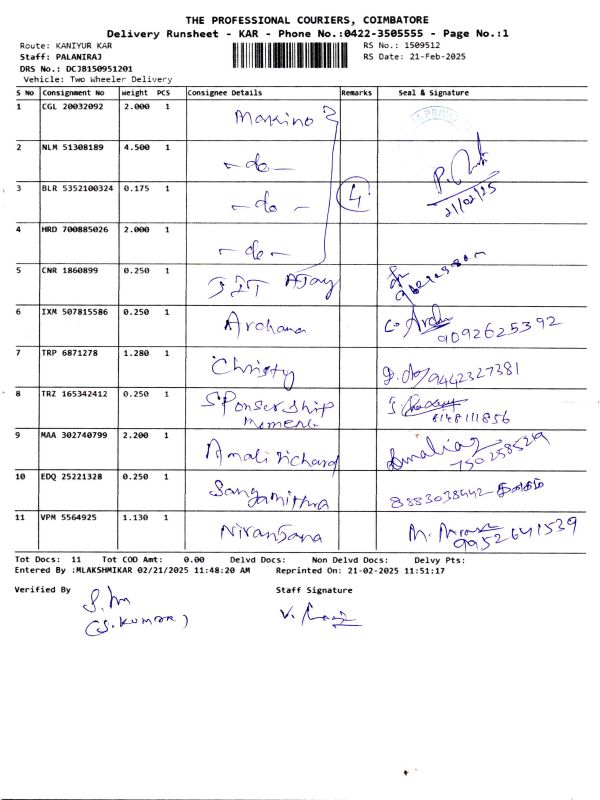 THE PROFESSIONAL COURIERS, COIMBATORE
Delivery Runsheet - KAR - Phone No.:0422-3505555 - Page No.:1
Route: KANIYUR KAR RS No.: 1509512
Staff: PALANIRAJ RS Date: 21-Feb-2025
DRS No.: DCJB150951201
Vehicle: Two Wheeler Delivery
S No Consignment No Weight PCS Consignee Details Remarks Seal & Signature
1 CGL 20032092 2.000 1 Makino
2 NLM 51308189 4.500 1 -do-
3 BLR 5352100324 0.175 1 -do- 4 21/02/25
4 HRD 700885026 2.000 1 -do-
5 CNR 1860899 0.250 1 Ajay
6 IXM 507815586 0.250 1 Archana 9092625392
7 TRP 6871278 1.280 1 Christy 9442327381
8 TRZ 165342412 0.250 1 Sponser Ship
9 MAA 302740799 2.200 1 Amali richard
10 EDQ 25221328 0.250 1 Sangamithra 8883038442
11 VPM 5564925 1.130 1 Niranjana 9952641539
Tot Docs: 11 Tot COD Amt: 0.00 Delvd Docs: Non Delvd Docs: Delvy Pts:
Entered By :MLAKSHMIKAR 02/21/2025 11:48:20 AM Reprinted On: 21-02-2025 11:51:17
Verified By Staff Signature
(S.KUMAR)